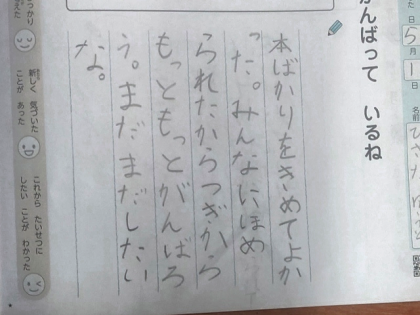 た日
5月1日
名前
がんばって いるね
本ばかりをきめてよか
った。みんなにほめ
られたからつぎから
もっともっとがんばろ
う。まだまだしたい
な。
新しく 気づいた
ことが あった
これから たいせつに
したい ことが わかった